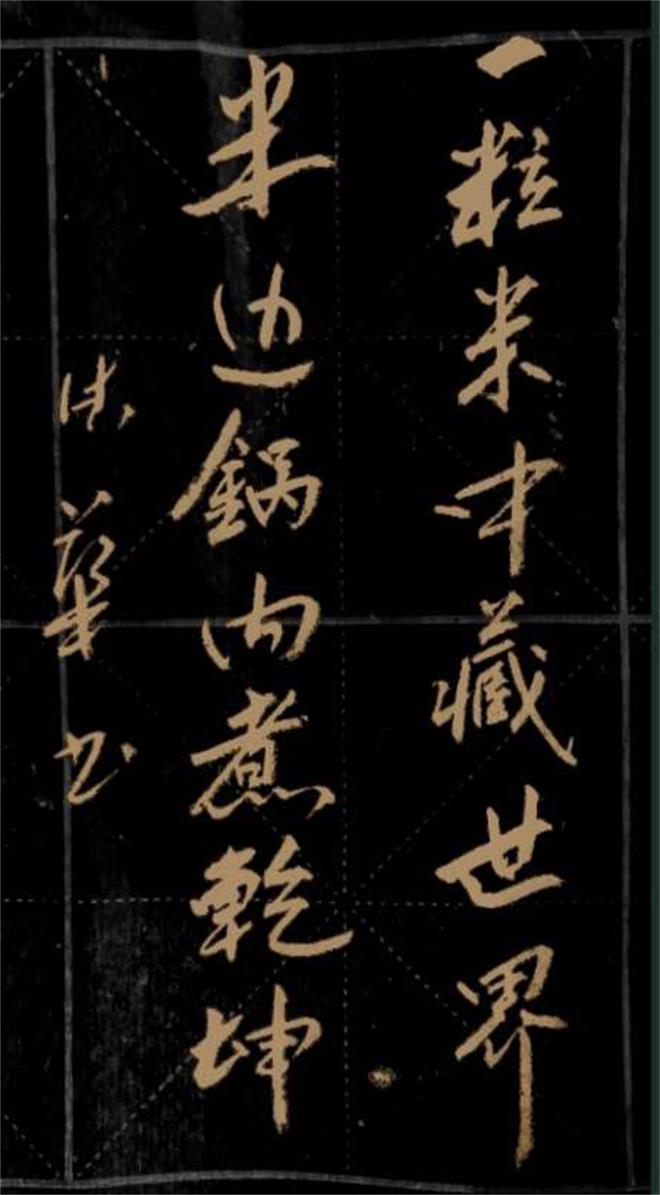 一粒米中藏世界
半边锅内煮乾坤
華书